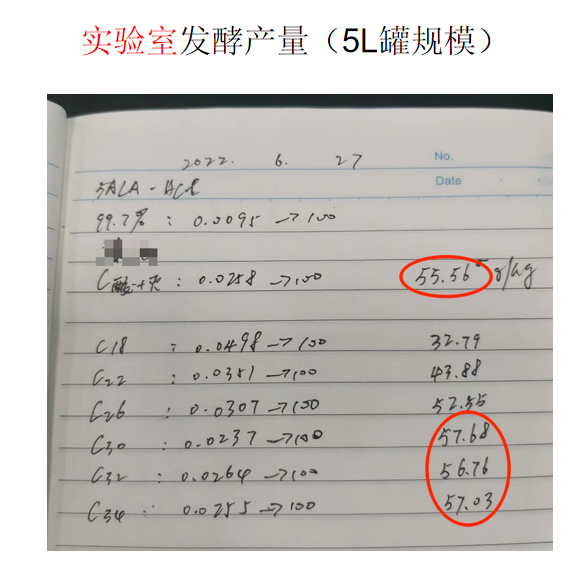 实验室发酵产量（5L罐规模）
2022. 6. 27 No.
Date
5ALA-HCl
99.7% : 0.0095 → 100
: 0.0258 → 100 55.56 g/kg
C18 : 0.0498 → 100 32.79
C22 : 0.0351 → 100 43.88
C26 : 0.0307 → 100 52.55
C30 : 0.0237 → 100 57.68
C32 : 0.0264 → 100 56.76
C34 : 0.0255 → 100 57.03